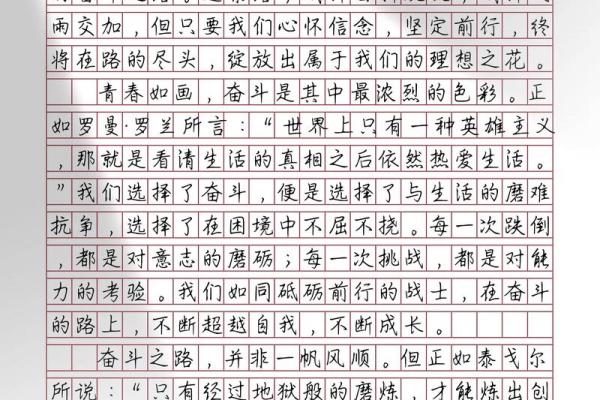 雨交加，但只要我们心怀信念，坚定前行，终
将在路的尽头，绽放出属于我们的理想之花。
青春如画，奋斗是其中最浓烈的色彩。正
如罗曼·罗兰所言：“世界上只有一种英雄主义
，那就是看清生活的真相之后依然热爱生活。
”我们选择了奋斗，便是选择了与生活的磨难
抗争，选择了在困境中不屈不挠。每一次跌倒
，都是对意志的磨砺；每一次挑战，都是对能
力的考验。我们如同砥砺前行的战士，在奋斗
的路上，不断超越自我，不断成长。
奋斗之路，并非一帆风顺。但正如泰戈尔
所说：“只有经过地狱般的磨炼，才能炼出创